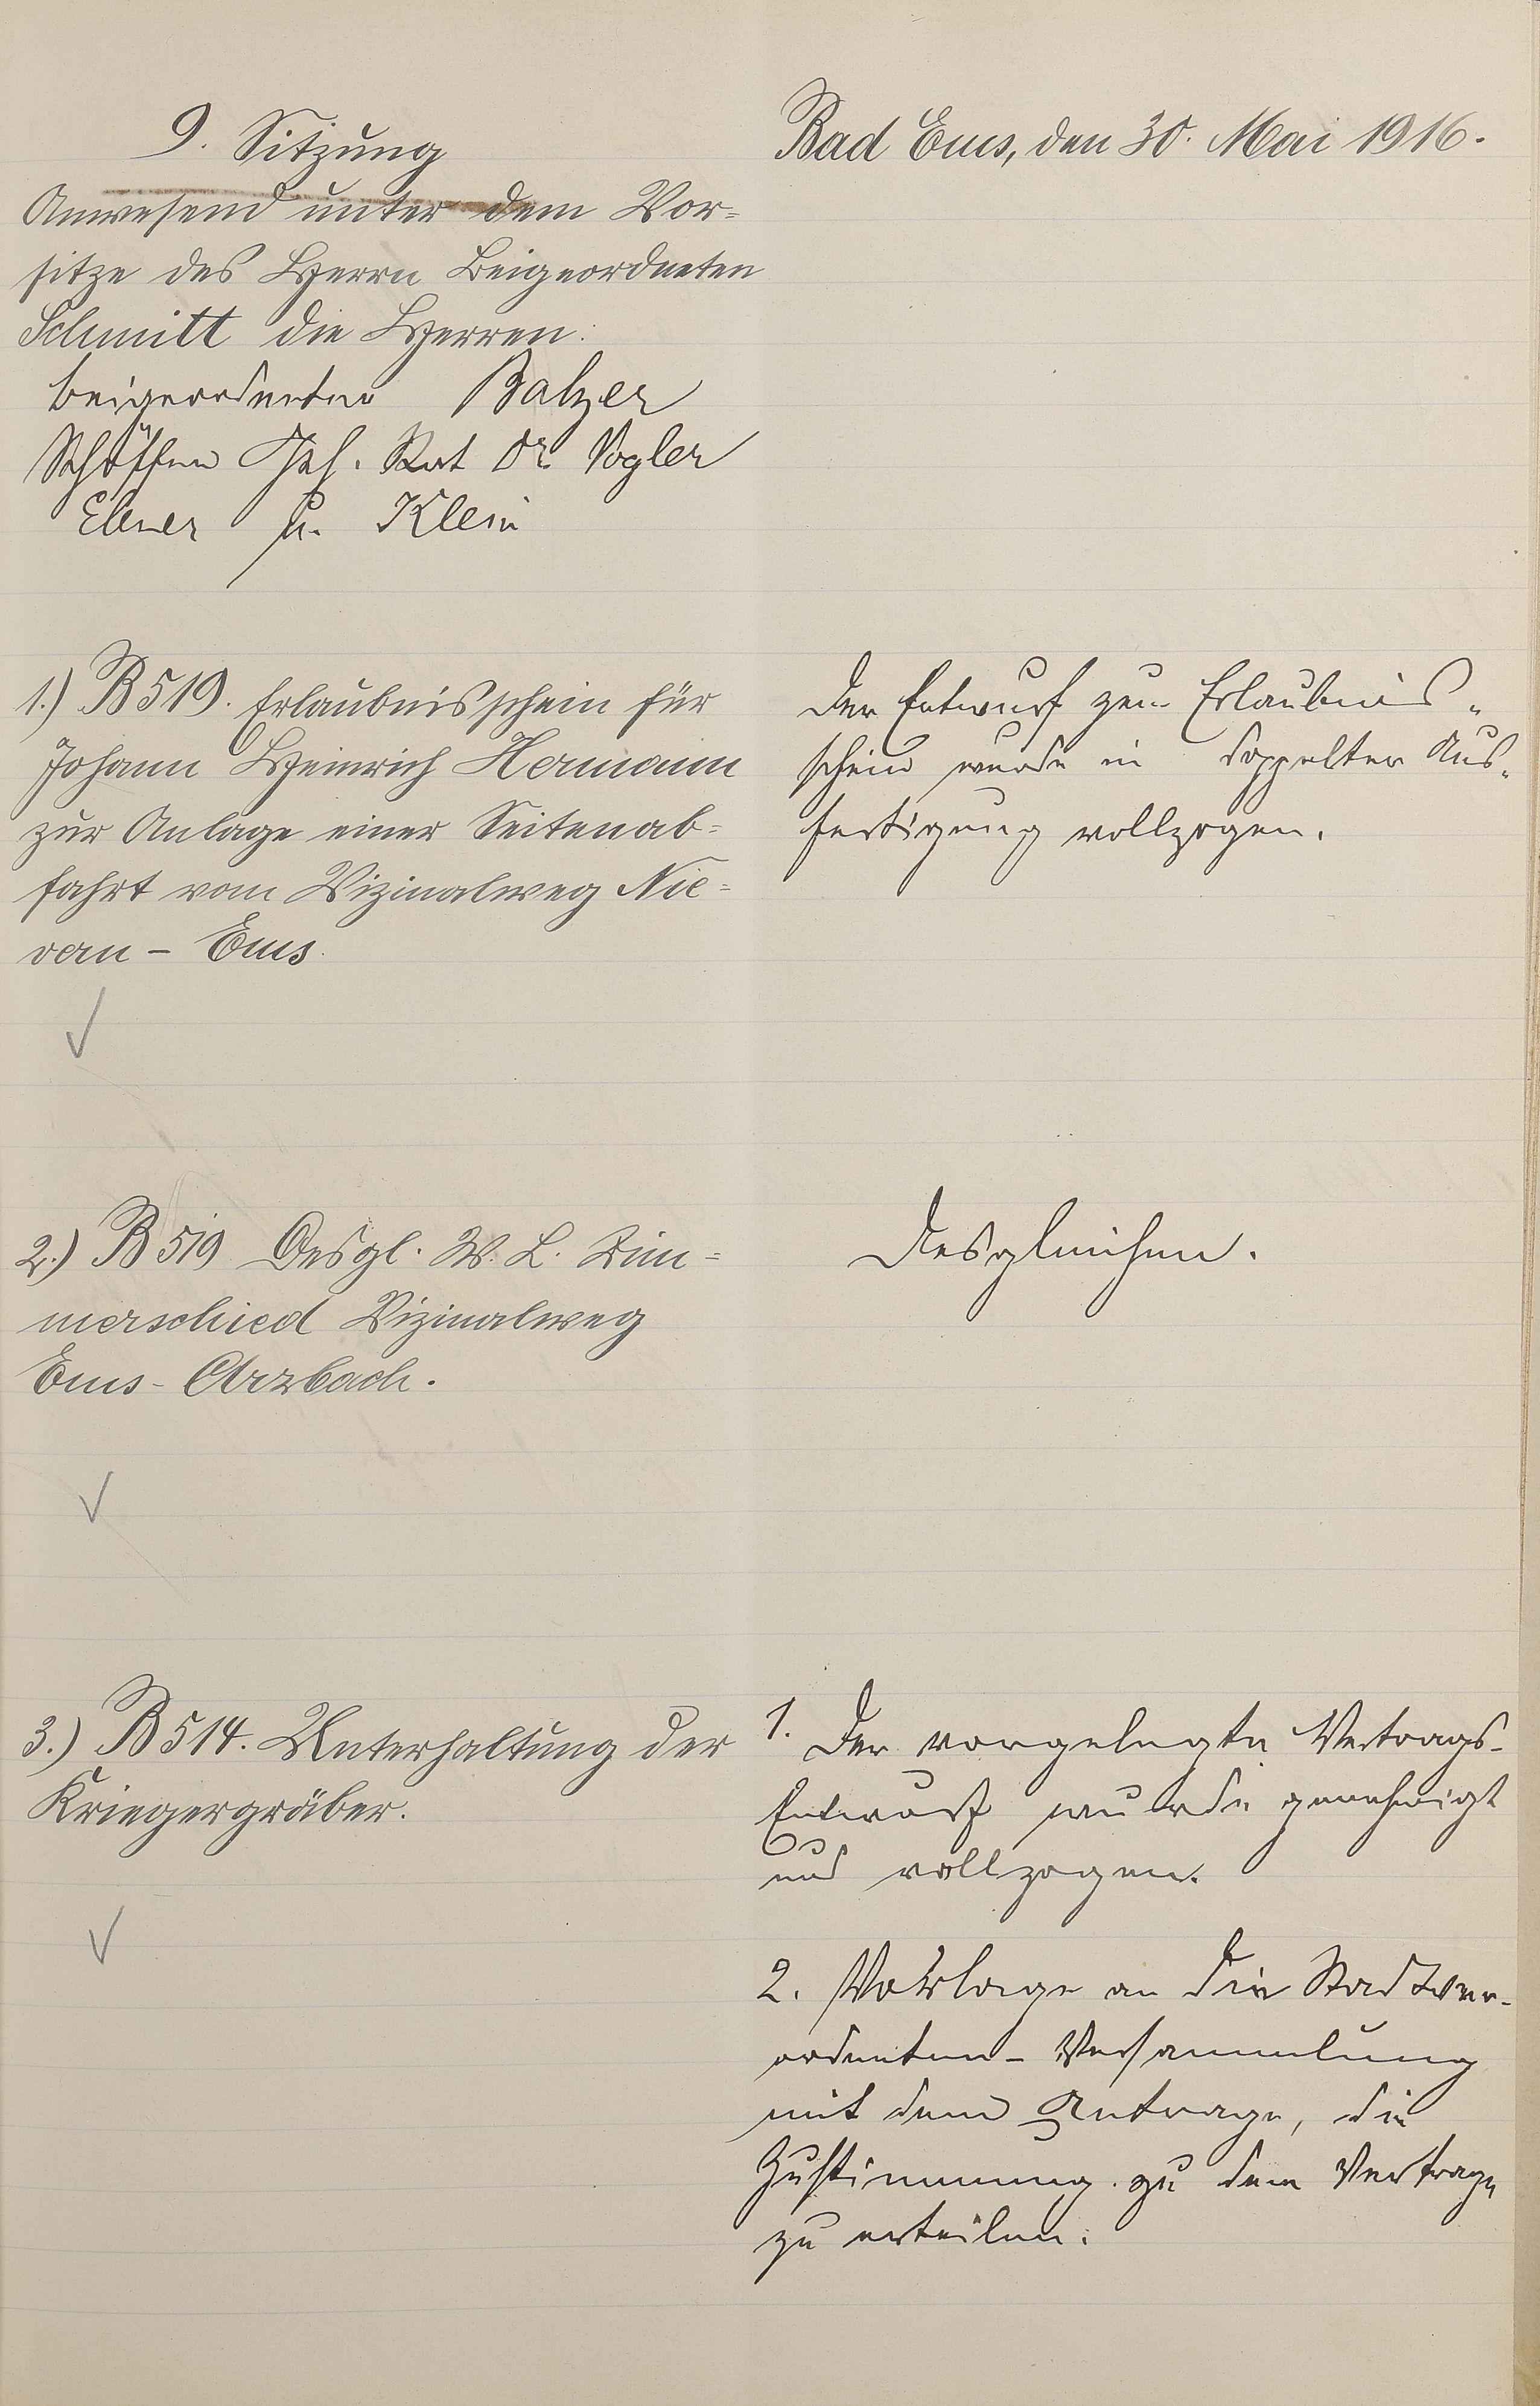 9. Sitzung
Anwesend unter dem Vor=
sitze des Herrn Beigeordneten
Schmitt die Herren:
Beigeordneter Balzer
Schöffen Geh. Rat Dr. Vogler
Ebner u. Klein
Bad Ems, den 30. Mai 1916.
1.) B 519. Erlaubnisschein für
Johann Heinrich Hermann
zur Anlage einer Seitenab=
fahrt vom Vizinalweg Nie=
vern - Ems.
Der Entwurf zum Erlaubnis-
schein wurde in doppelter Aus-
fertigung vollzogen.
2.) B 519 Desgl. W. L. Zim=
merschied Vizinalweg
Ems - Arzbach.
Desgleichen.
3.) B 514. Unterhaltung der
Kriegergräber.
1. Der vorgelegte Vertrags-
Entwurf wurde genehmigt
und vollzogen.
2. Vorlage an die Stadtver-
ordneten-Versammlung
mit dem Antrage, die
Zustimmung zu dem Vertrage
zu erteilen.